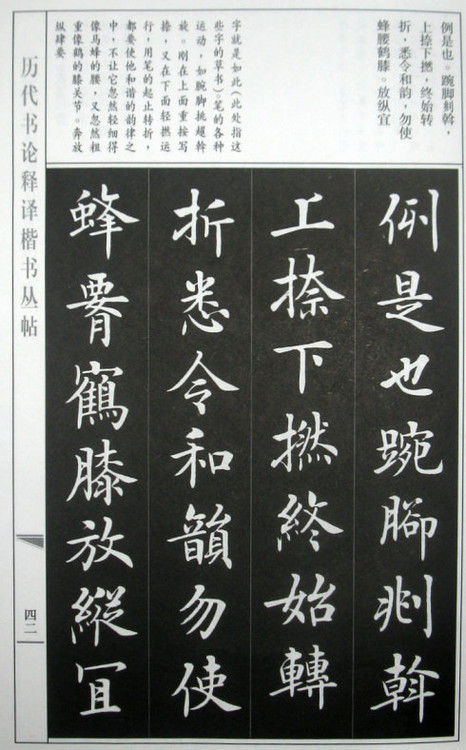 例是也。踠脚斡，
上捺下撚，终始转
折，悉令和韵，勿使
蜂腰鹤膝。放纵宜
字就是如此（此处指这
些字的草书）。笔的各种
运动，如踠脚挑趯斡
旋。刚在上面重按写
捺，又在下面轻撚运
行，用笔的起止转折，
都要使他和谐的韵律之
中，不让它忽然轻细得
像马蜂的腰，又忽然粗
重像鹤的膝关节。奔放
纵肆要
例是也踠腳斡
上捺下撚終始轉
折悉令和韻勿使
蜂腰鶴膝放縱宜
历代书论释译楷书丛帖
四二